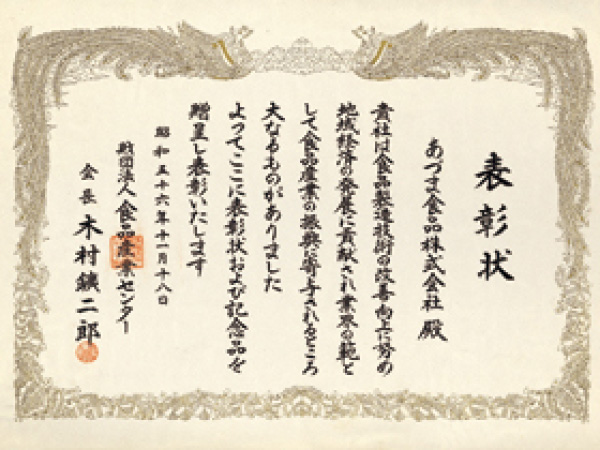 表彰状
あづま食品株式会社 殿
貴社は食品製造技術の改善向上に努め
地域経済の発展に貢献され業界の範と
して食品産業の振興に寄与されるところ
大なるものがありました
よってここに表彰状および記念品を
贈呈し表彰いたします
昭和五十六年十一月十八日
財団法人 食品産業センター
会長 木村鑛二郎